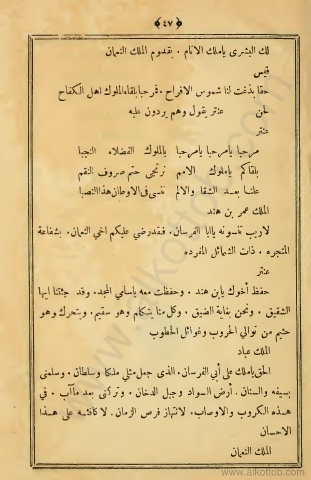 ﴿٤٧﴾
لك البشرى ياملك الانام . بقدوم الملك النعمان
قيس
حقا بذغت لنا شموس الافراح . فمرحبا بلقاء الملوك اهل الكفاح
لحن عنتر يقول وهم يردون عليه
عنتر
مرحبا يامرحبا يامرحبا بالملوك الفضلاء النجبا
بلقاكم ياملوك الامم نرتجي حتم صروف النقم
علنا بعد الشقا والالم ننسى فى الاوطان هذا النصبا
الملك عمر بن هند
لاريب تنسونه يابا الفرسان . فقد رضي عليكم اخي النعمان . بشفاعة
المتجره . ذات الشمائل المفرده
عنتر
حفظ أخوك يابن هند . وحفظت معه ياسامي المجد . وقد جئتنا ايها
الشقيق . ونحن بغاية الضيق . وكل منا يتكلم وهو سقيم . ويتحرك وهو
حثيم من توالي الحروب وغوائل الخطوب
الملك عباد
الحق ياملك على أبي الفرسان . الذى جعل مثلي ملكا وسلطان . وسلمنى
بسيفه والسنان . أرض السواد وجبل الدخان . وتركنى بعد مآآب . في
هذه الكروب والاوصاب . لانتهاز فرص الزمان . لاكافئه على هذا
الاحسان
الملك النعمان
www.alkottob.com